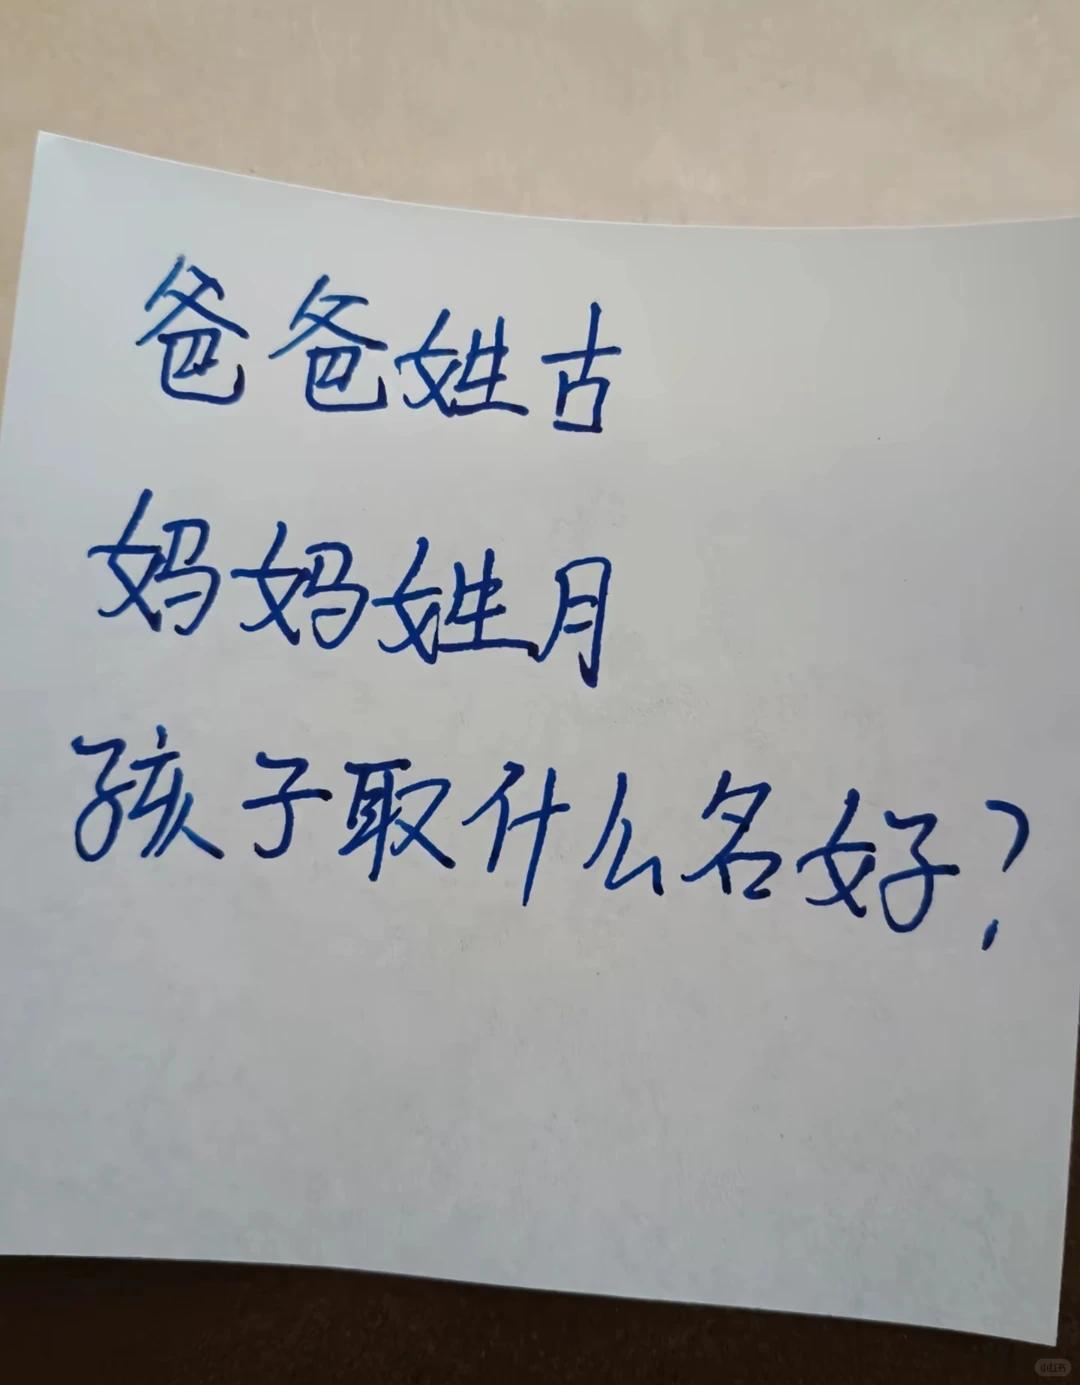 爸爸姓古
妈妈姓月
孩子取什么名好?
小红书